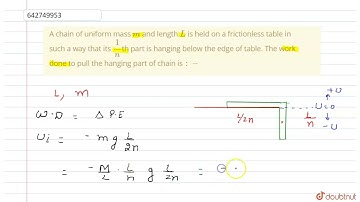 642749953
A chain of uniform mass m and length L is held on a frictionless table in
such a way that its 1/n th part is hanging below the edge of table. The work
done to pull the hanging part of chain is : –
L, m
W.D = Δ P.E
Ui = - mg L/2n
= - M/L · L/n g L/2n =
L/2n
U=0
+U
-U
L/n
doubtnut